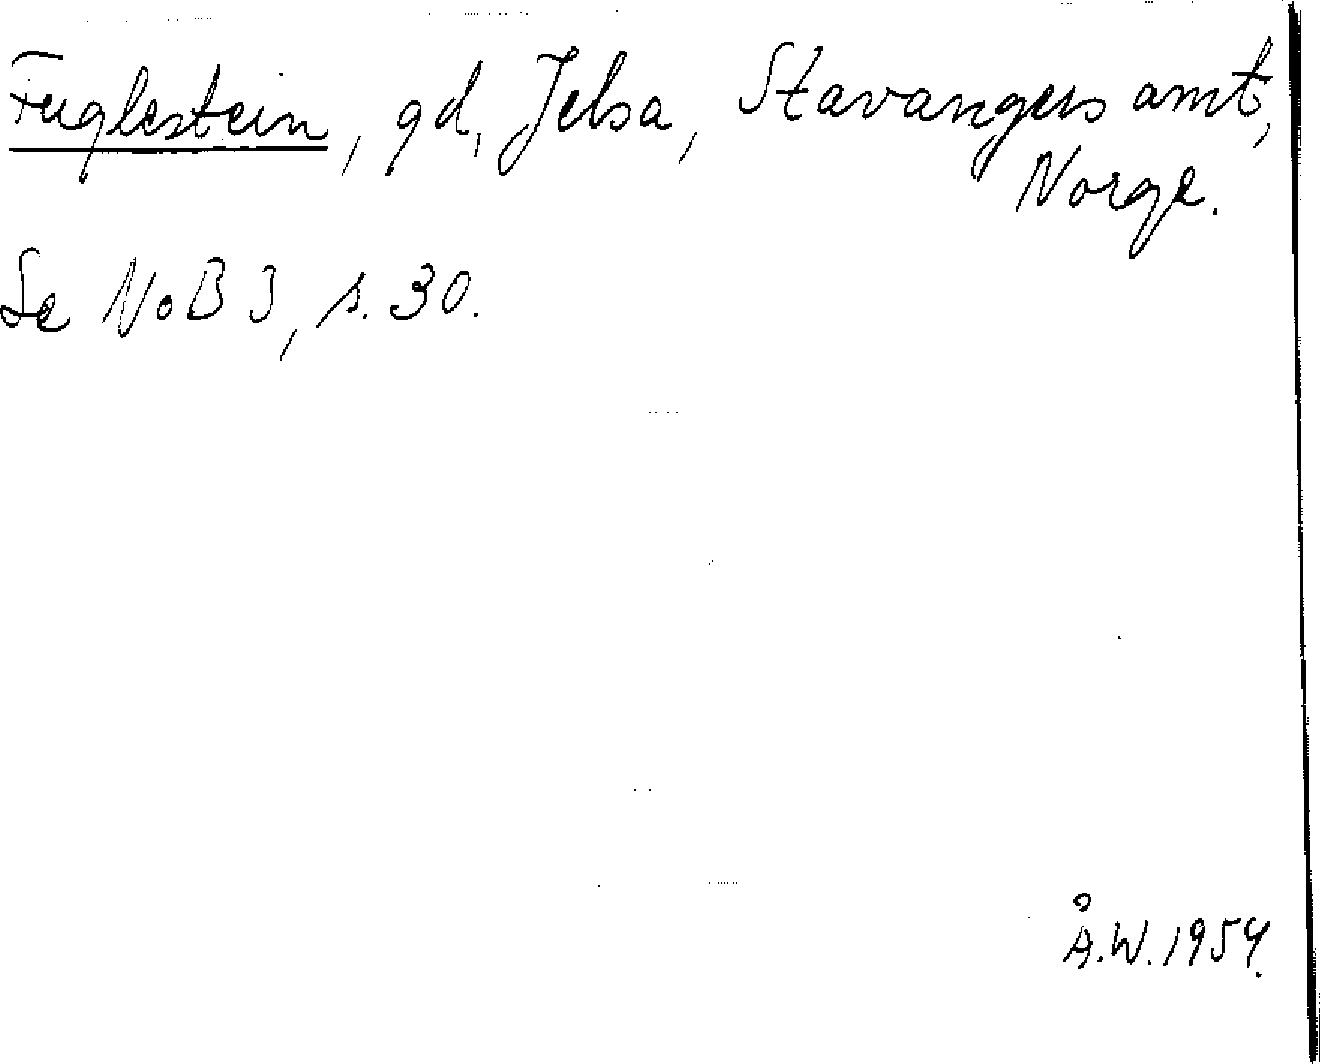 Fuglestein, gd, Jelsa, Stavangers amt,
Norge.
Se NoB 3, s. 30.
Å.W. 1954.